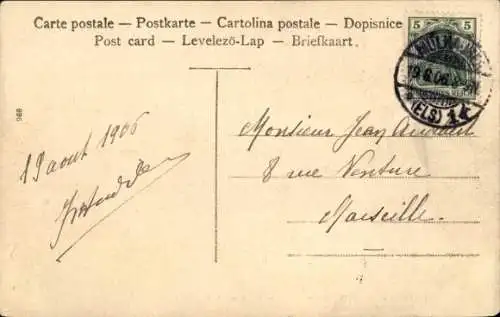 Carte postale — Postkarte — Cartolina postale — Dopisnice
Post card — Levelező-Lap — Briefkaart.
5 5
(ELS)
968
19 aout 1906
Monsieur Jean
8 rue Venture
Marseille.